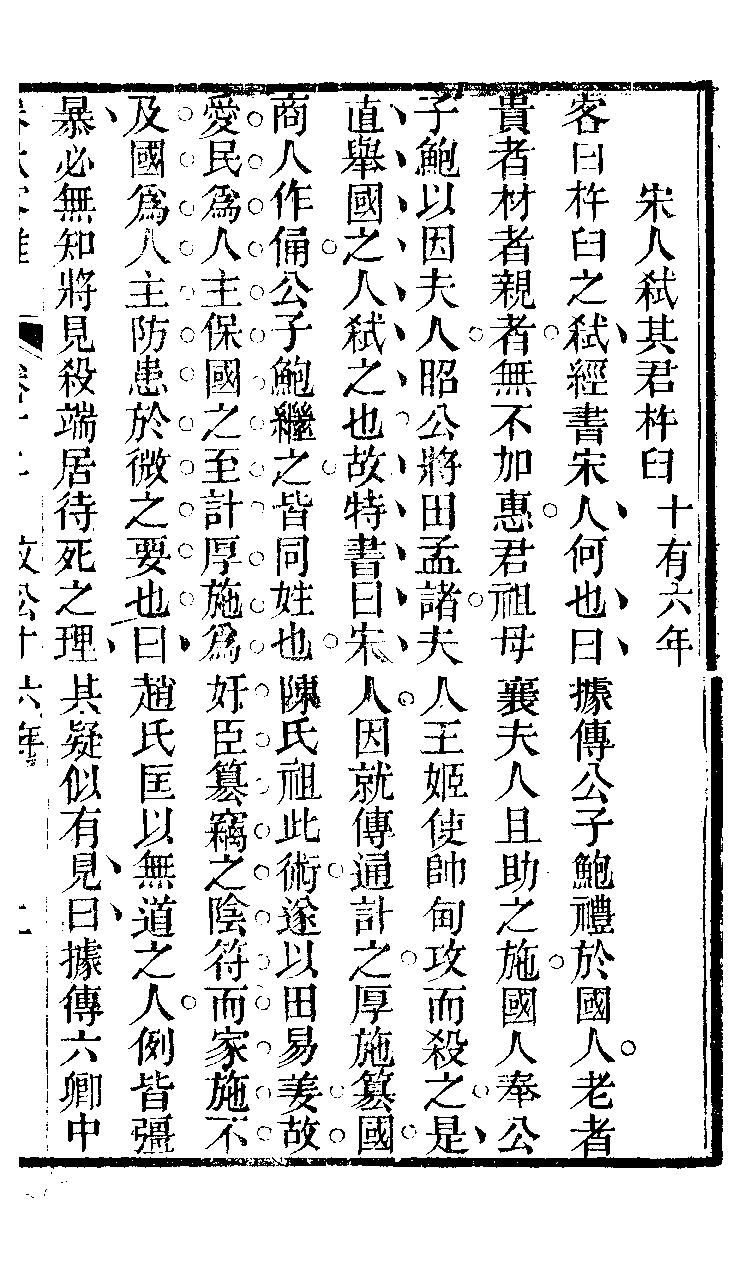 宋人弑其君杵臼 十有六年
客曰杵臼之弑經書宋人何也曰據傳公子鮑禮於國人老者
貴者材者親者無不加惠君祖母襄夫人且助之施國人奉公
子鮑以因夫人昭公將田孟諸夫人王姬使帥甸攻而殺之是
直舉國之人弑之也故特書曰宋人因就傳通計之厚施簒國
商人作俑公子鮑繼之皆同姓也陳氏祖此術遂以田易姜故
愛民爲人主保國之至計厚施爲奸臣簒竊之陰符而家施不
及國爲人主防患於微之要也曰趙氏匡以無道之人例皆彊
暴必無知將見殺端居待死之理其疑似有見曰據傳六卿中